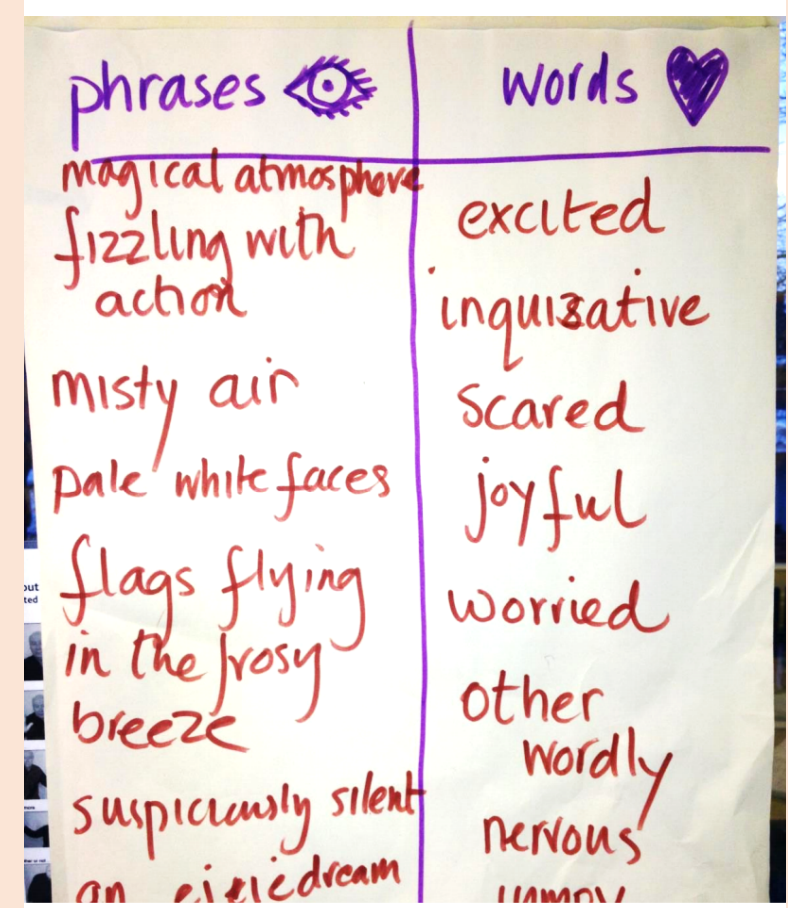 phrases
magical atmosphere
fizzling with
action
misty air
pale white faces
flags flying
in the frosy
breeze
suspiciously silent
an dream
words
excited
inquisative
scared
joyful
worried
other
wordly
nervous
out
ted